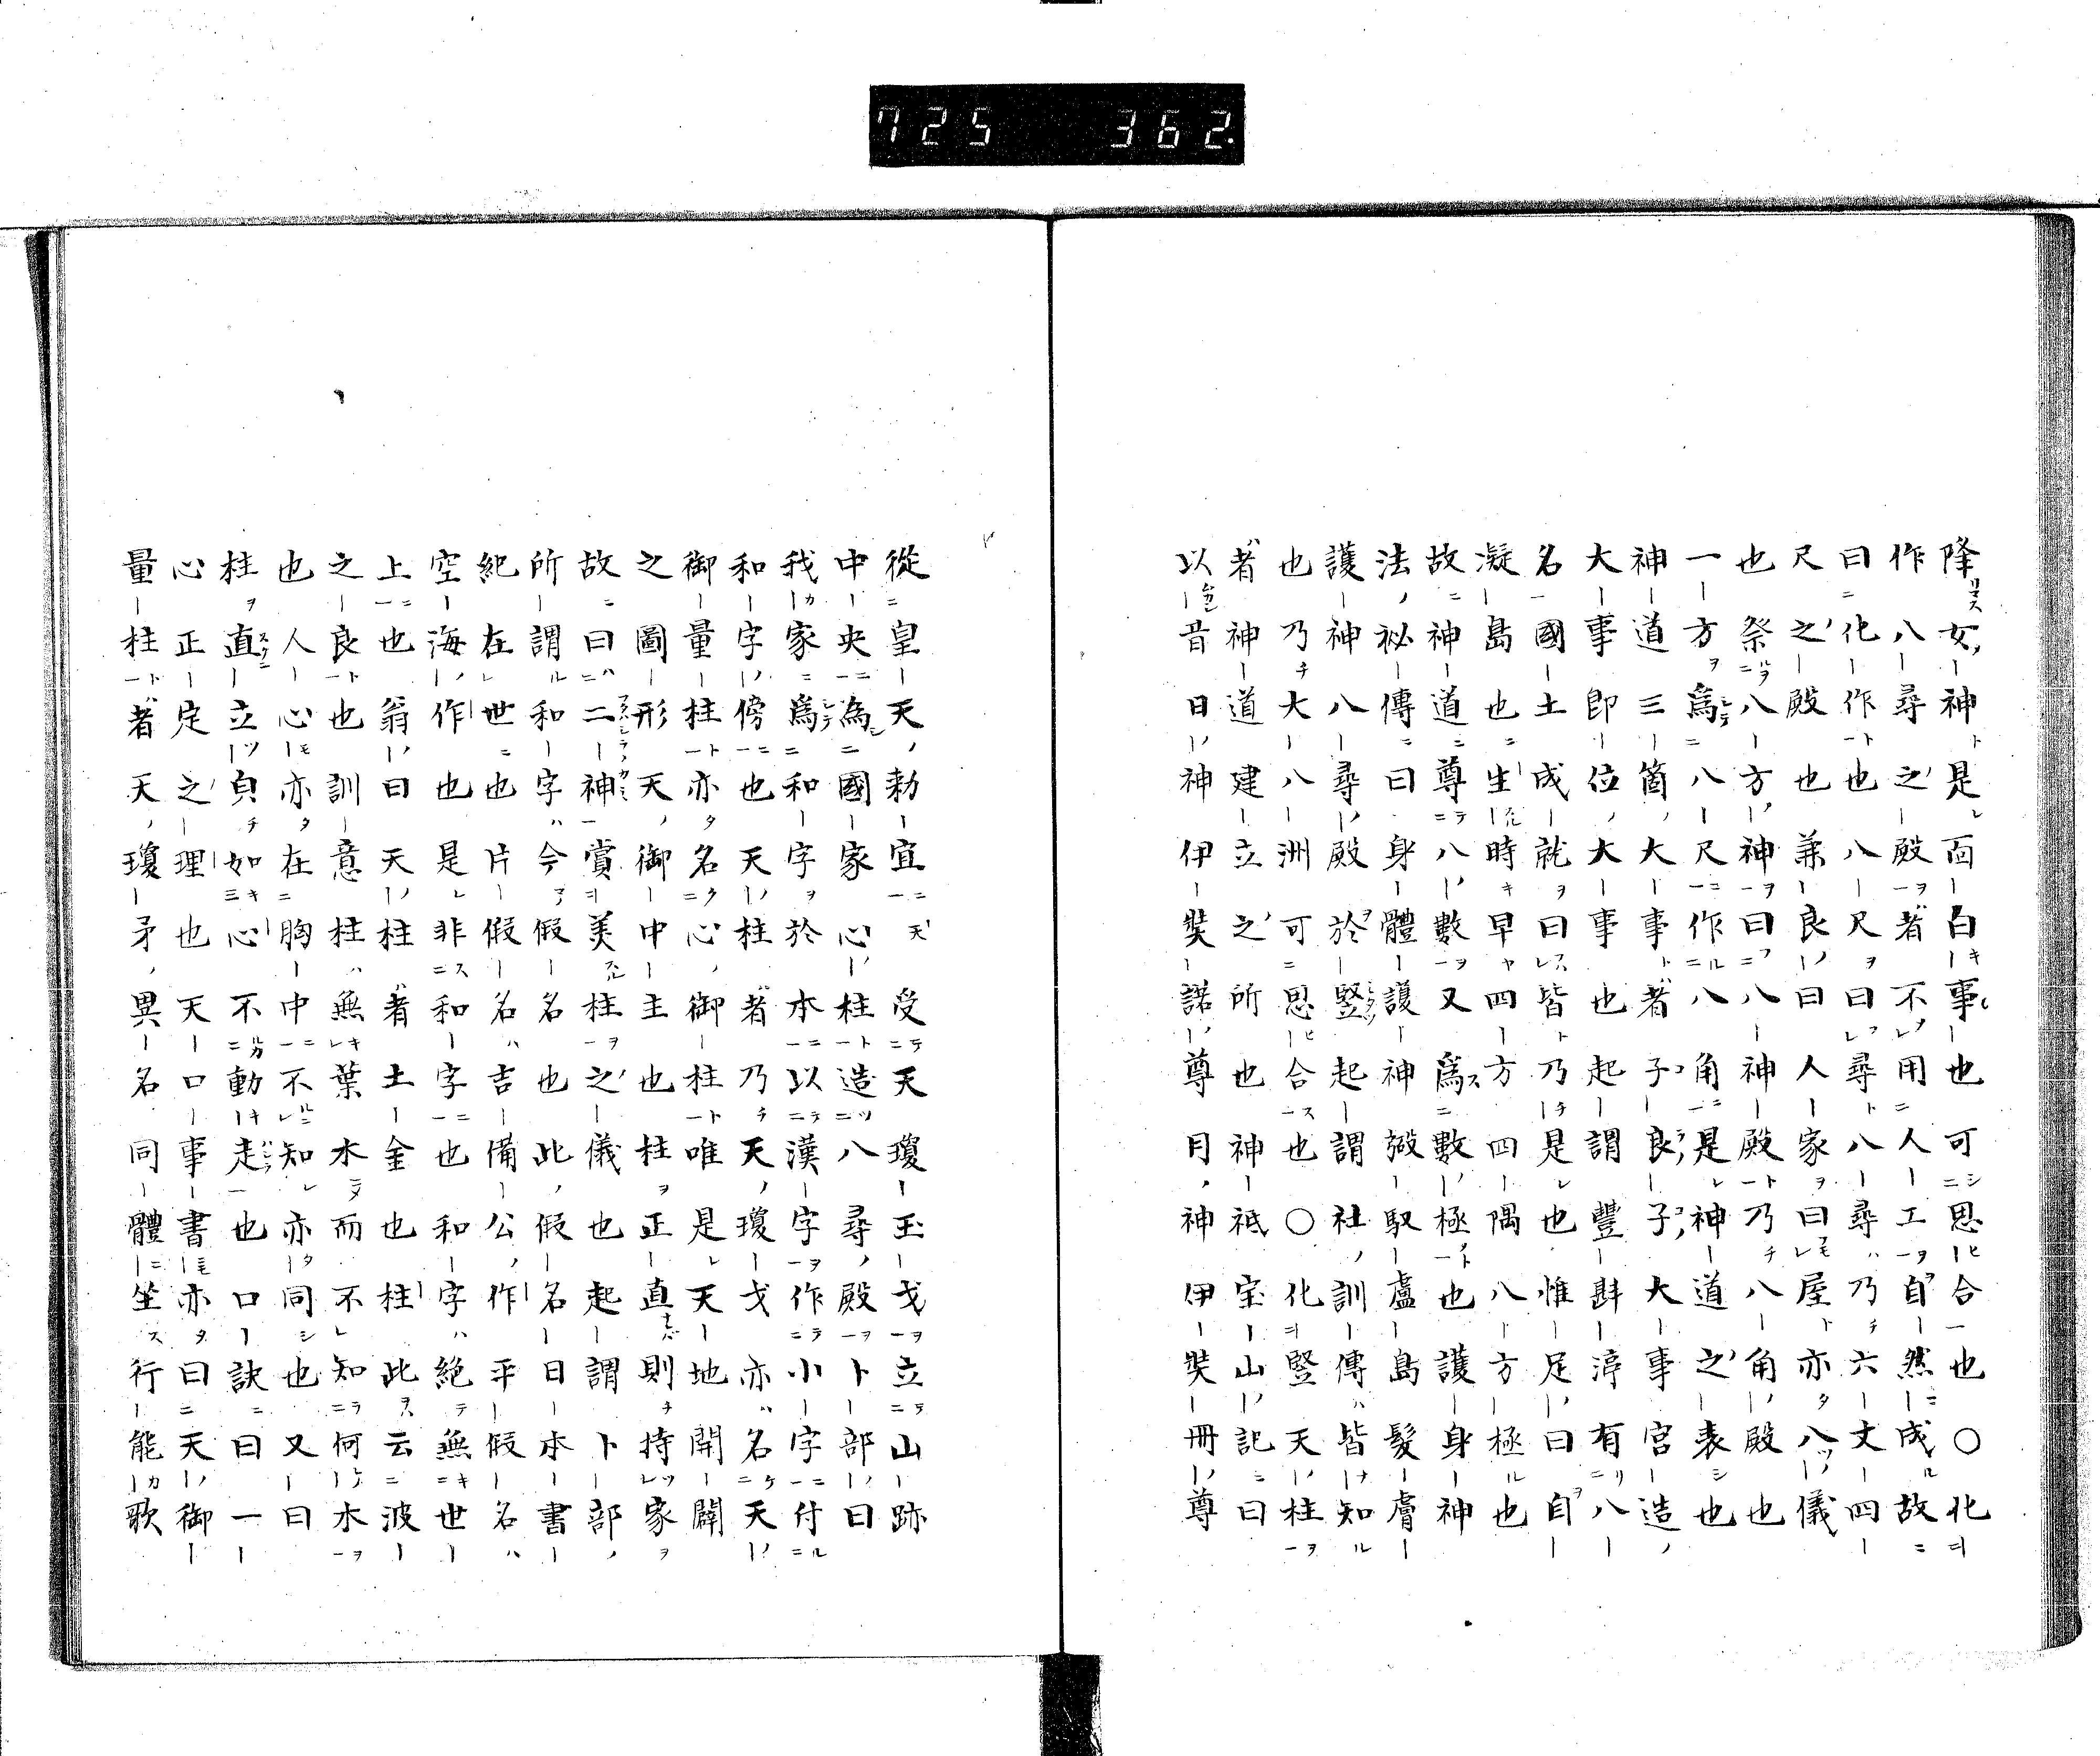 725 362.
降女神是面白事也可思合也〇化
作八尋之殿者不用人工自然成故
曰化作也八尺曰尋八尋乃六丈四
尺之殿也兼良曰人家曰屋亦八儀
也祭八方神曰八神殿乃八角殿也
一方爲八尺作八角是神道之表也
神道三箇大事者子良子大事宮造
大事即位大事也起謂豐斟渟有八
名國土成就曰皆乃是也惟足曰自
凝島也生時早四方四隅八方極也
故神道尊八數又爲數極也護身神
法祕傳曰身體護神
護神八尋殿於竪起謂社訓傳皆知
也乃大八洲可思合也〇化竪天柱
者神道建立之所也神祇宝山記曰
以昔日神伊奘諾尊月神伊奘冊尊
從皇天勅宣受天瓊玉戈立山跡
中央為國家心柱造八尋殿卜部曰
我家爲和字於本以漢字作小字付
和字傍也天柱者乃天瓊戈亦名天
御量柱亦名心御柱唯是天地開闢
之圖形天御中主也柱正直則持家
故曰二神賞美柱之儀也起謂卜部
所謂和字今假名也此假名日本書
紀在世也片假名吉備公作平假名
空海作也是非和字也和字絕無世
上也翁曰天柱者土金也柱此云波
之良也訓意柱無葉木而不知何木
也人心亦在胸中不知亦同也又曰
柱直立貞如心不動走也口訣曰一
心正定之理也天口事書亦曰天御
量柱者天瓊矛異名同體坐行能歌